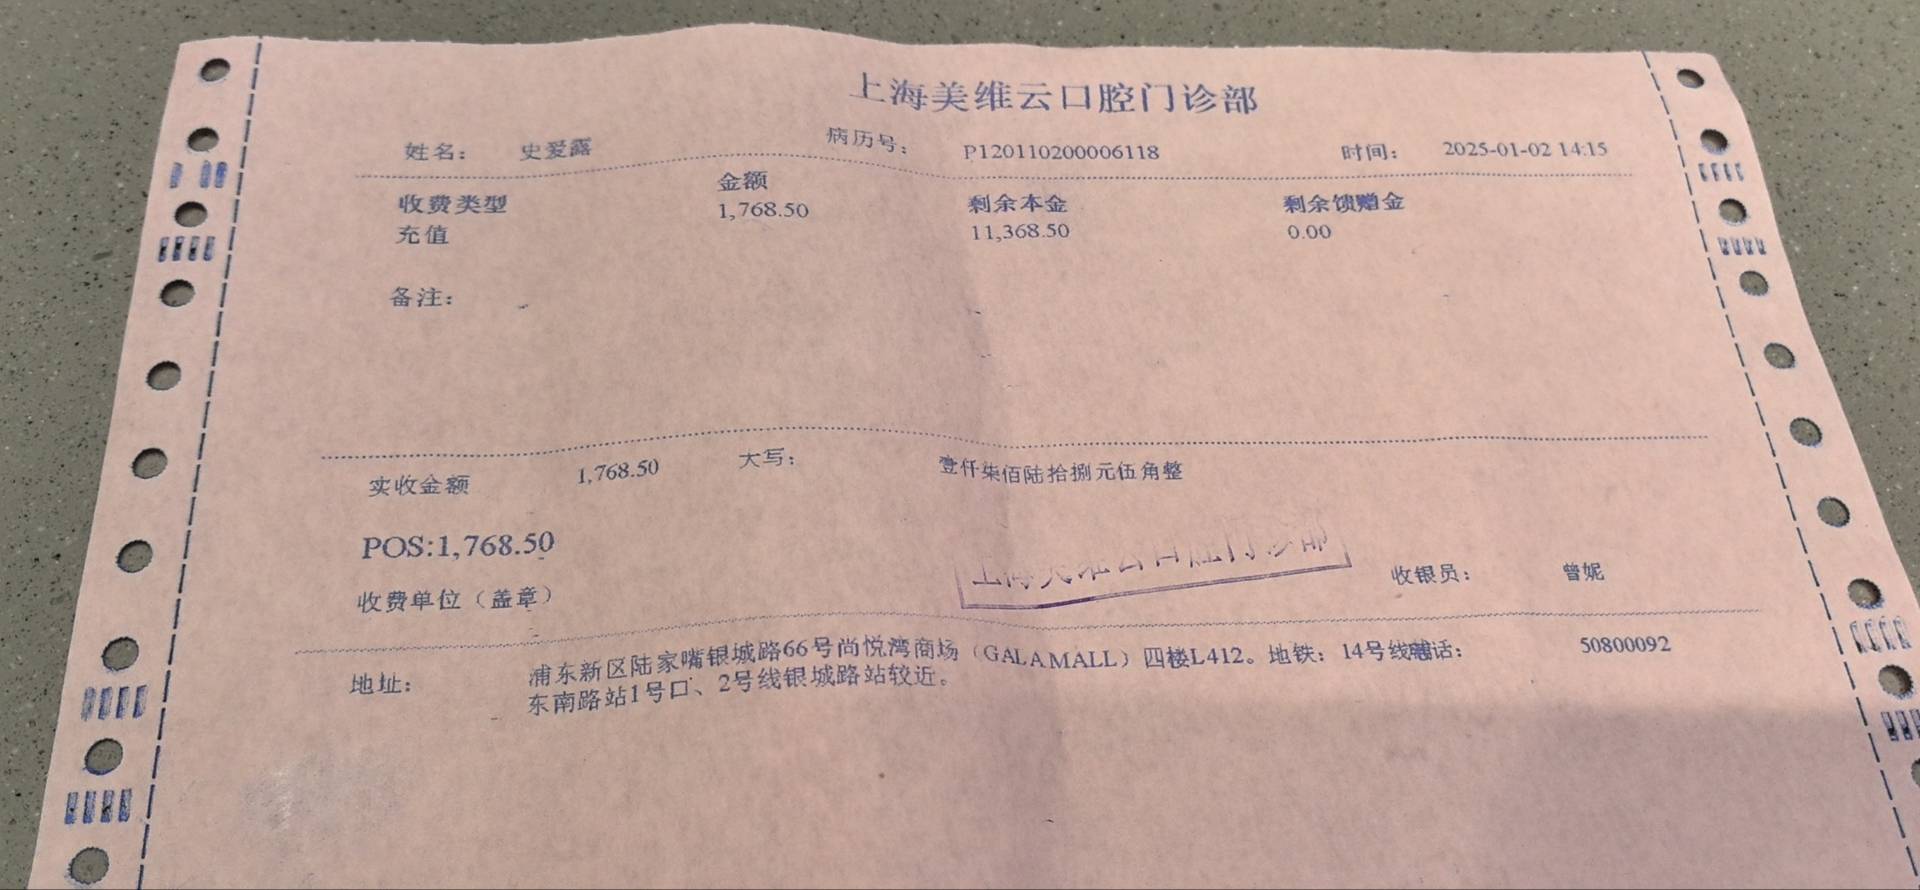 上海美维云口腔门诊部
姓名： 史爱露 病历号： P120110200006118 时间： 2025-01-02 14:15
收费类型 金额 剩余本金 剩余馈赠金
充值 1,768.50 11,368.50 0.00
备注：
实收金额 1,768.50 大写： 壹仟柒佰陆拾捌元伍角整
POS:1,768.50
上海美维云口腔门诊部
收费单位（盖章） 收银员： 曾妮
地址： 浦东新区陆家嘴银城路66号尚悦湾商场（GALAMALL）四楼L412。地铁：14号线 话： 50800092
东南路站1号口、2号线银城路站较近。